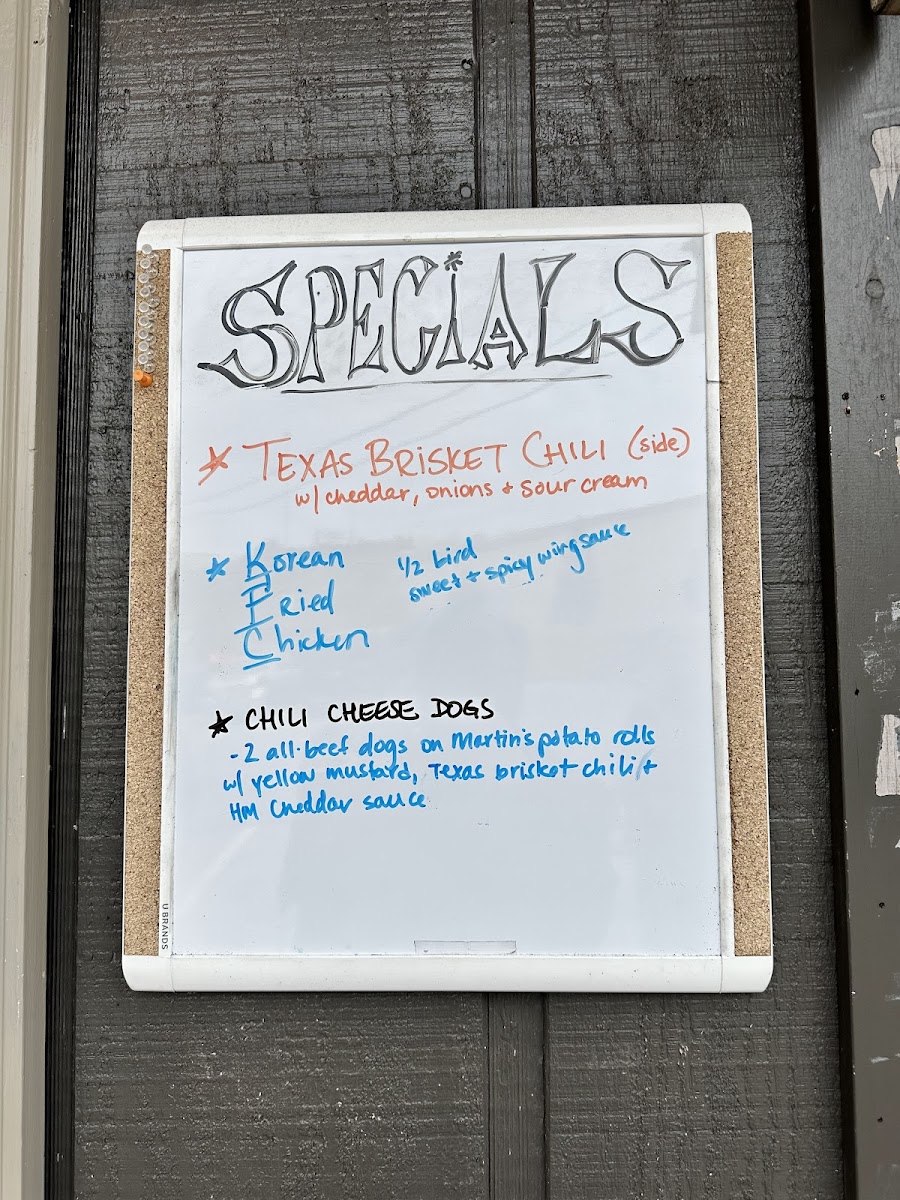 SPECIALS
* TEXAS BRISKET CHILI (side)
w/ cheddar, onions + sour cream
* Korean
Fried
Chicken
1/2 bird
sweet + spicy wing sauce
* CHILI CHEESE DOGS
- 2 all-beef dogs on Martin's potato rolls
w/ yellow mustard, Texas brisket chili +
HM Cheddar sauce
U BRANDS